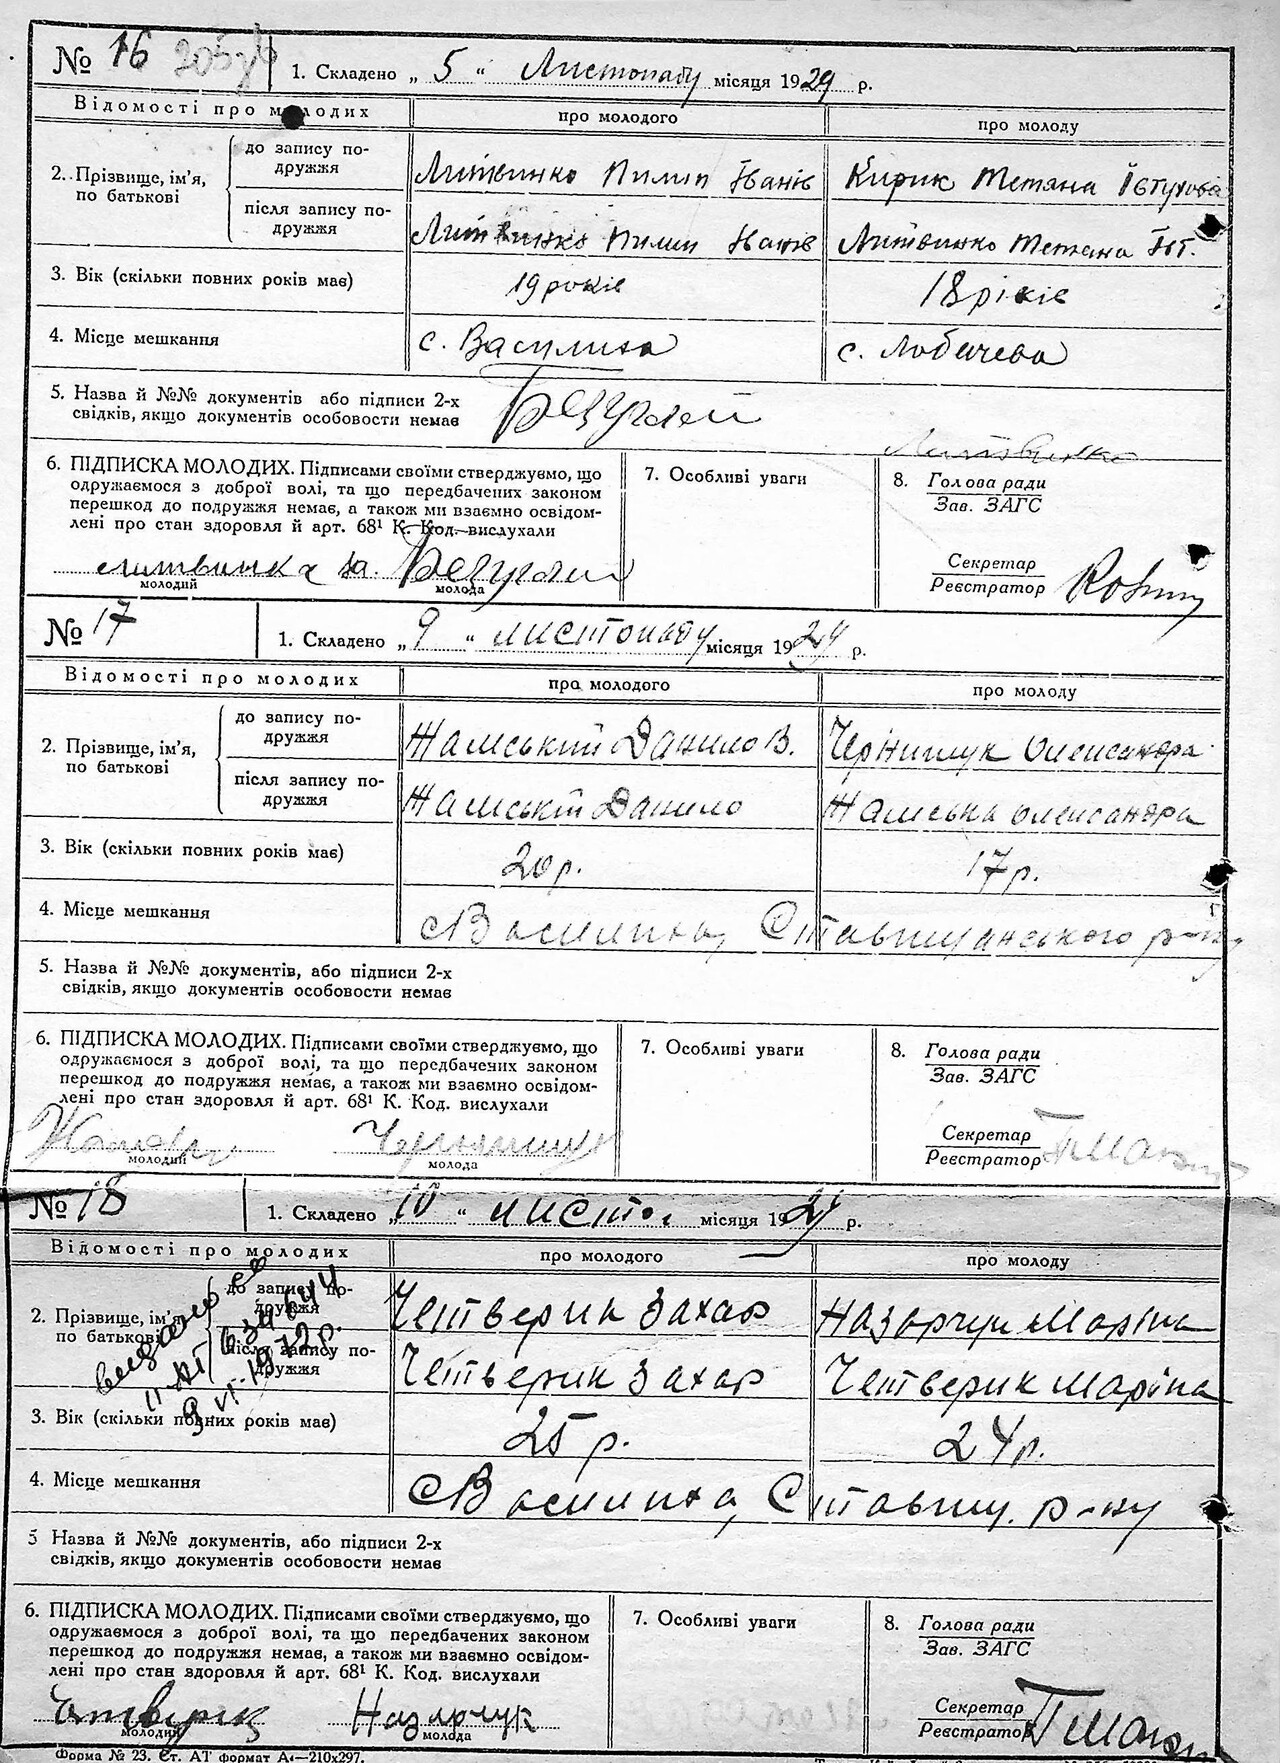 № 16
1. Складено „ 5 “ Листопаду місяця 1929 р.
Відомості про молодих
про молодого
про молоду
2. Прізвище, ім'я, по батькові
до запису по-
дружжя
Литвинко Пилип Іванів
Кирик Тетяна Євтухова
після запису по-
дружжя
Литвинко Пилип Іванів
Литвинко Тетяна Євт.
3. Вік (скільки повних років має)
19 років
18 років
4. Місце мешкання
с. Василиха
с. Лобачева
5. Назва й №№ документів або підписи 2-х
свідків, якщо документів особовости немає
Безуглий
6. ПІДПИСКА МОЛОДИХ. Підписами своїми стверджуємо, що
одружаємося з доброї волі, та що передбачених законом
перешкод до подружжя немає, а також ми взаємно освідом-
лені про стан здоровля й арт. 68¹ К. Код. вислухали
7. Особливі уваги
Литвинко
8. Голова ради
Зав. ЗАГС
Секретар
Реєстратор
литвинка за Безуглий
молодий
молода
№ 17
1. Складено „ 9 “ листопаду місяця 1929 р.
Відомості про молодих
про молодого
про молоду
2. Прізвище, ім'я,
по батькові
до запису по-
дружжя
Жамський Данило В.
Чернишук Олександра
після запису по-
дружжя
Жамські Данило
Жамська Олександра
3. Вік (скільки повних років має)
20 р.
17 р.
4. Місце мешкання
с Василиха, Ставищанського р-ну
5. Назва й №№ документів, або підписи 2-х
свідків, якщо документів особовости немає
6. ПІДПИСКА МОЛОДИХ. Підписами своїми стверджуємо, що
одружаємося з доброї волі, та що передбачених законом
перешкод до подружжя немає, а також ми взаємно освідом-
лені про стан здоровля й арт. 68¹ К. Код. вислухали
7. Особливі уваги
8. Голова ради
Зав. ЗАГС
Секретар
Реєстратор
молодий
молода
№ 18
1. Складено „ 10 “ листоп. місяця 1929 р.
Відомості про молодих
про молодого
про молоду
2. Прізвище, ім'я
по батькові
до запису по-
дружжя
Четверик Захар
Назарчук Маріна
після запису по-
дружжя
Четверик Захар
Четверик Маріна
3. Вік (скільки повних років має)
25 р.
24 р.
4. Місце мешкання
с Василиха, Ставищ. р-ну
5 Назва й №№ документів, або підписи 2-х
свідків, якщо документів особовости немає
6. ПІДПИСКА МОЛОДИХ. Підписами своїми стверджуємо, що
одружаємося з доброї волі, та що передбачених законом
перешкод до подружжя немає, а також ми взаємно освідом-
лені про стан здоровля й арт. 68¹ К. Код. вислухали
7. Особливі уваги
8. Голова ради
Зав. ЗАГС
Секретар
Реєстратор
Четверик
Назарчук
молодий
молода
Форма № 23. Ст. АТ формат А₄—210х297.